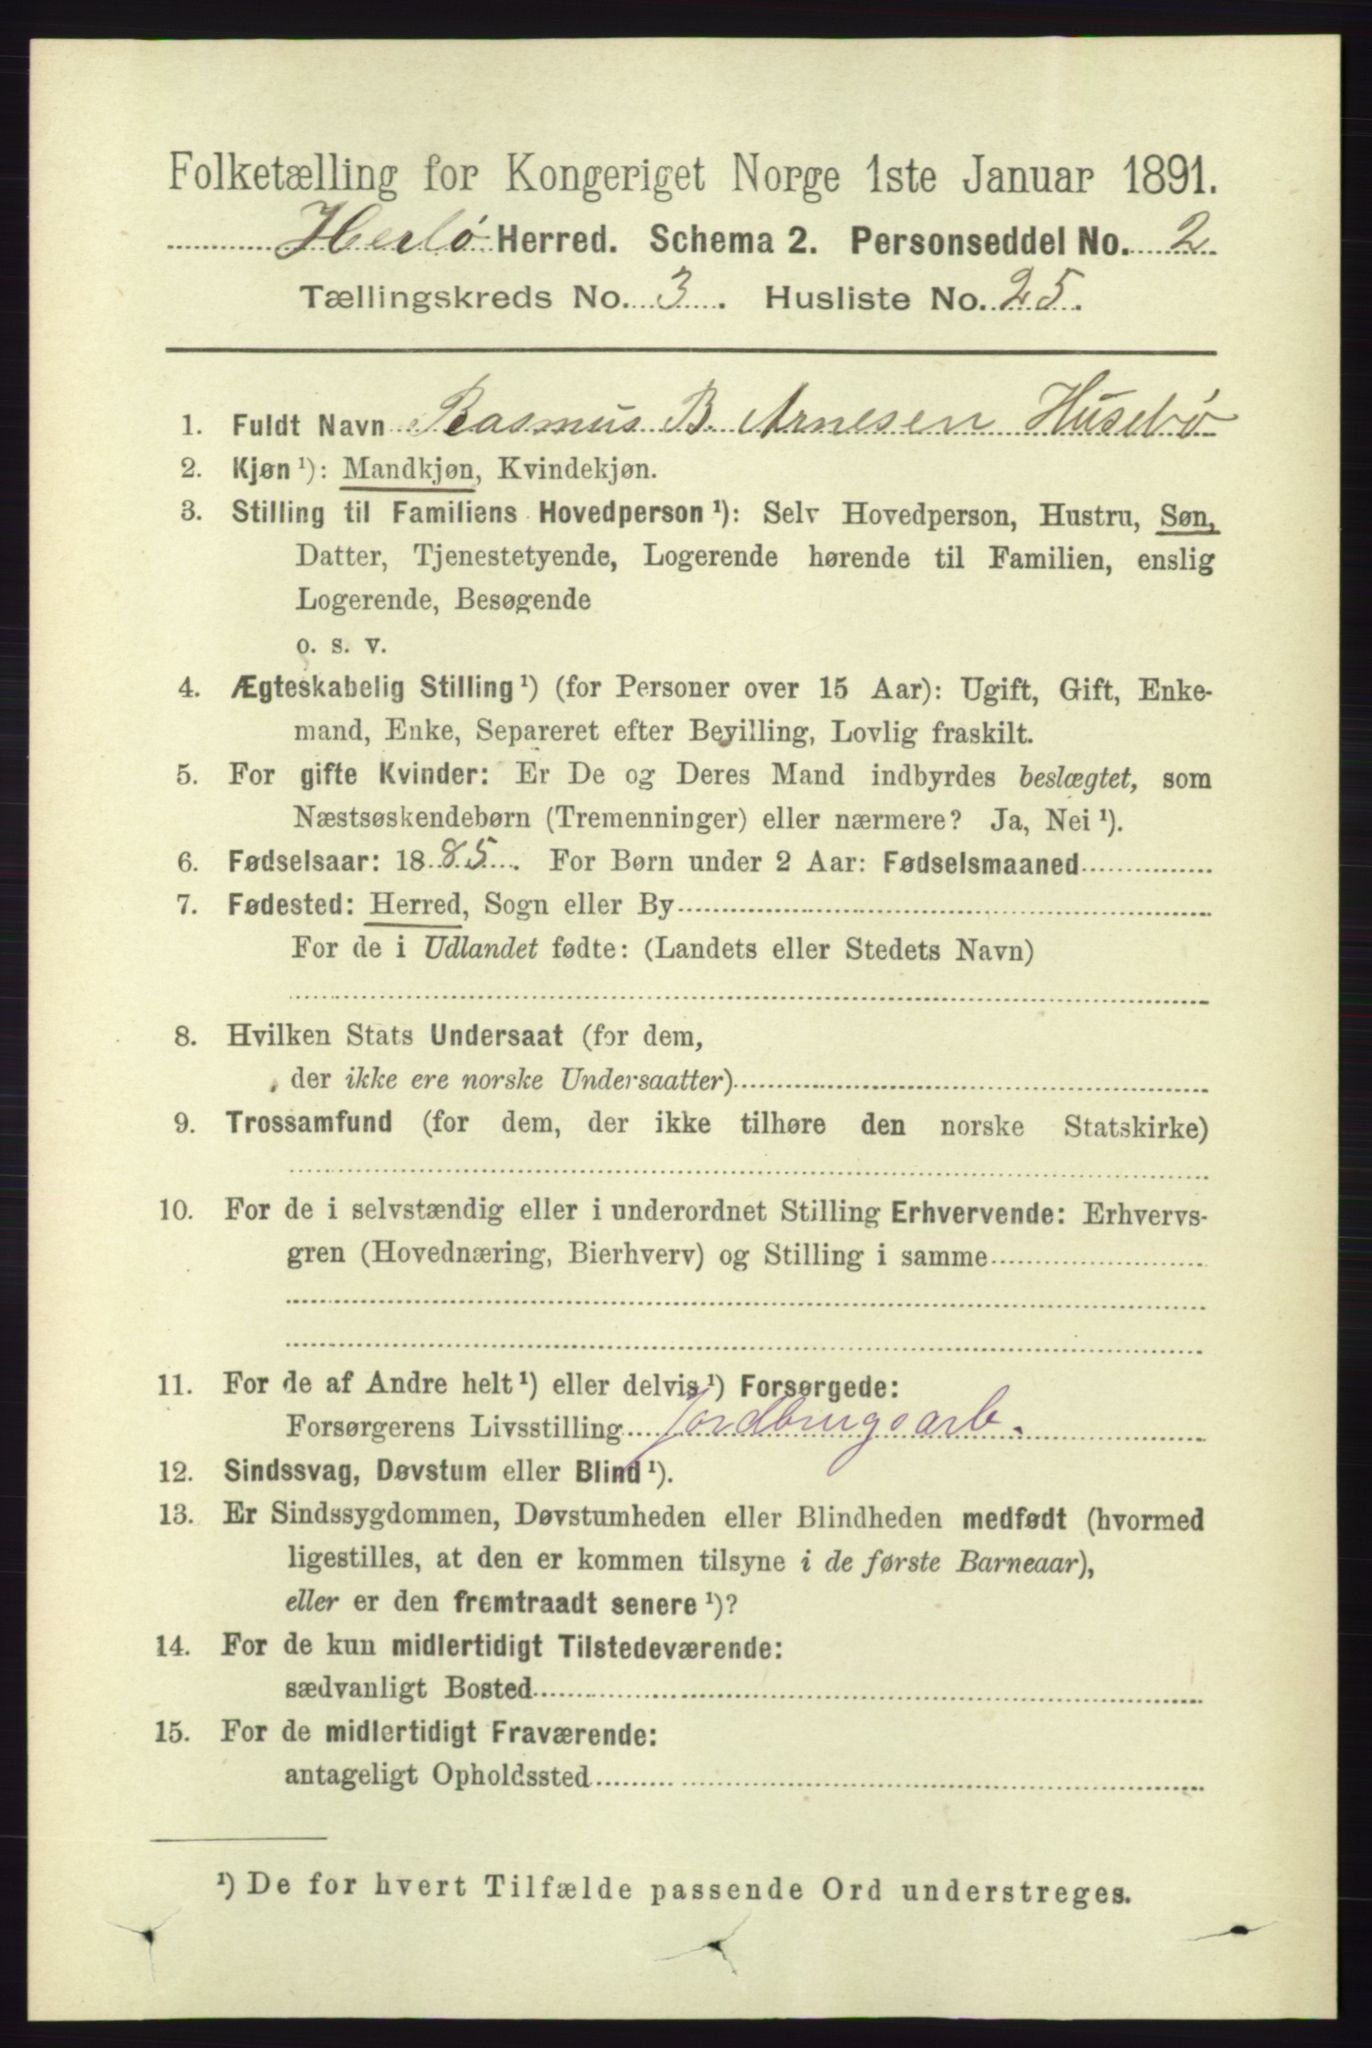 Folketælling for Kongeriget Norge 1ste Januar 1891.
Herlø Herred. Schema 2. Personseddel No. 2
Tællingskreds No. 3. Husliste No. 25.
1. Fuldt Navn Rasmus B. Arnesen Husebø
2. Kjøn¹): Mandkjøn, Kvindekjøn.
3. Stilling til Familiens Hovedperson¹): Selv Hovedperson, Hustru, Søn,
Datter, Tjenestetyende, Logerende hørende til Familien, enslig
Logerende, Besøgende
o. s. v.
4. Ægteskabelig Stilling¹) (for Personer over 15 Aar): Ugift, Gift, Enke-
mand, Enke, Separeret efter Bevilling, Lovlig fraskilt.
5. For gifte Kvinder: Er De og Deres Mand indbyrdes beslægtet, som
Næstsøskendebørn (Tremenninger) eller nærmere? Ja, Nei¹).
6. Fødselsaar: 1885. For Børn under 2 Aar: Fødselsmaaned
7. Fødested: Herred, Sogn eller By
For de i Udlandet fødte: (Landets eller Stedets Navn)
8. Hvilken Stats Undersaat (for dem,
der ikke ere norske Undersaatter)
9. Trossamfund (for dem, der ikke tilhøre den norske Statskirke)
10. For de i selvstændig eller i underordnet Stilling Erhvervende: Erhvervs-
gren (Hovednæring, Bierhverv) og Stilling i samme
11. For de af Andre helt¹) eller delvis¹) Forsørgede:
Forsørgerens Livsstilling Jordbrugsarb.
12. Sindssvag, Døvstum eller Blind¹).
13. Er Sindssygdommen, Døvstumheden eller Blindheden medfødt (hvormed
ligestilles, at den er kommen tilsyne i de første Barneaar),
eller er den fremtraadt senere¹)?
14. For de kun midlertidigt Tilstedeværende:
sædvanligt Bosted
15. For de midlertidigt Fraværende:
antageligt Opholdssted
¹) De for hvert Tilfælde passende Ord understreges.